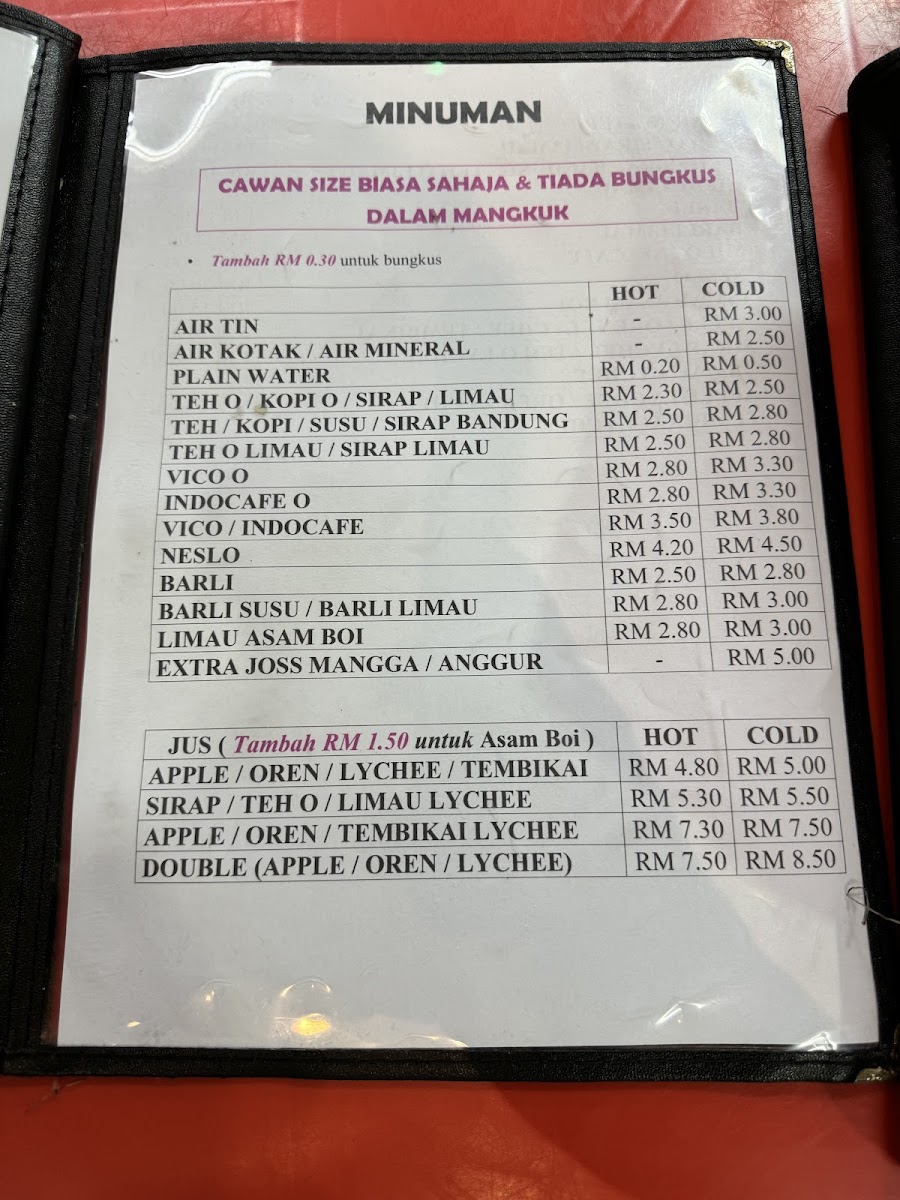 MINUMAN
CAWAN SIZE BIASA SAHAJA & TIADA BUNGKUS
DALAM MANGKUK
• Tambah RM 0.30 untuk bungkus
HOT COLD
AIR TIN - RM 3.00
AIR KOTAK / AIR MINERAL - RM 2.50
PLAIN WATER RM 0.20 RM 0.50
TEH O / KOPI O / SIRAP / LIMAU RM 2.30 RM 2.50
TEH / KOPI / SUSU / SIRAP BANDUNG RM 2.50 RM 2.80
TEH O LIMAU / SIRAP LIMAU RM 2.50 RM 2.80
VICO O RM 2.80 RM 3.30
INDOCAFE O RM 2.80 RM 3.30
VICO / INDOCAFE RM 3.50 RM 3.80
NESLO RM 4.20 RM 4.50
BARLI RM 2.50 RM 2.80
BARLI SUSU / BARLI LIMAU RM 2.80 RM 3.00
LIMAU ASAM BOI RM 2.80 RM 3.00
EXTRA JOSS MANGGA / ANGGUR - RM 5.00
JUS ( Tambah RM 1.50 untuk Asam Boi ) HOT COLD
APPLE / OREN / LYCHEE / TEMBIKAI RM 4.80 RM 5.00
SIRAP / TEH O / LIMAU LYCHEE RM 5.30 RM 5.50
APPLE / OREN / TEMBIKAI LYCHEE RM 7.30 RM 7.50
DOUBLE (APPLE / OREN / LYCHEE) RM 7.50 RM 8.50